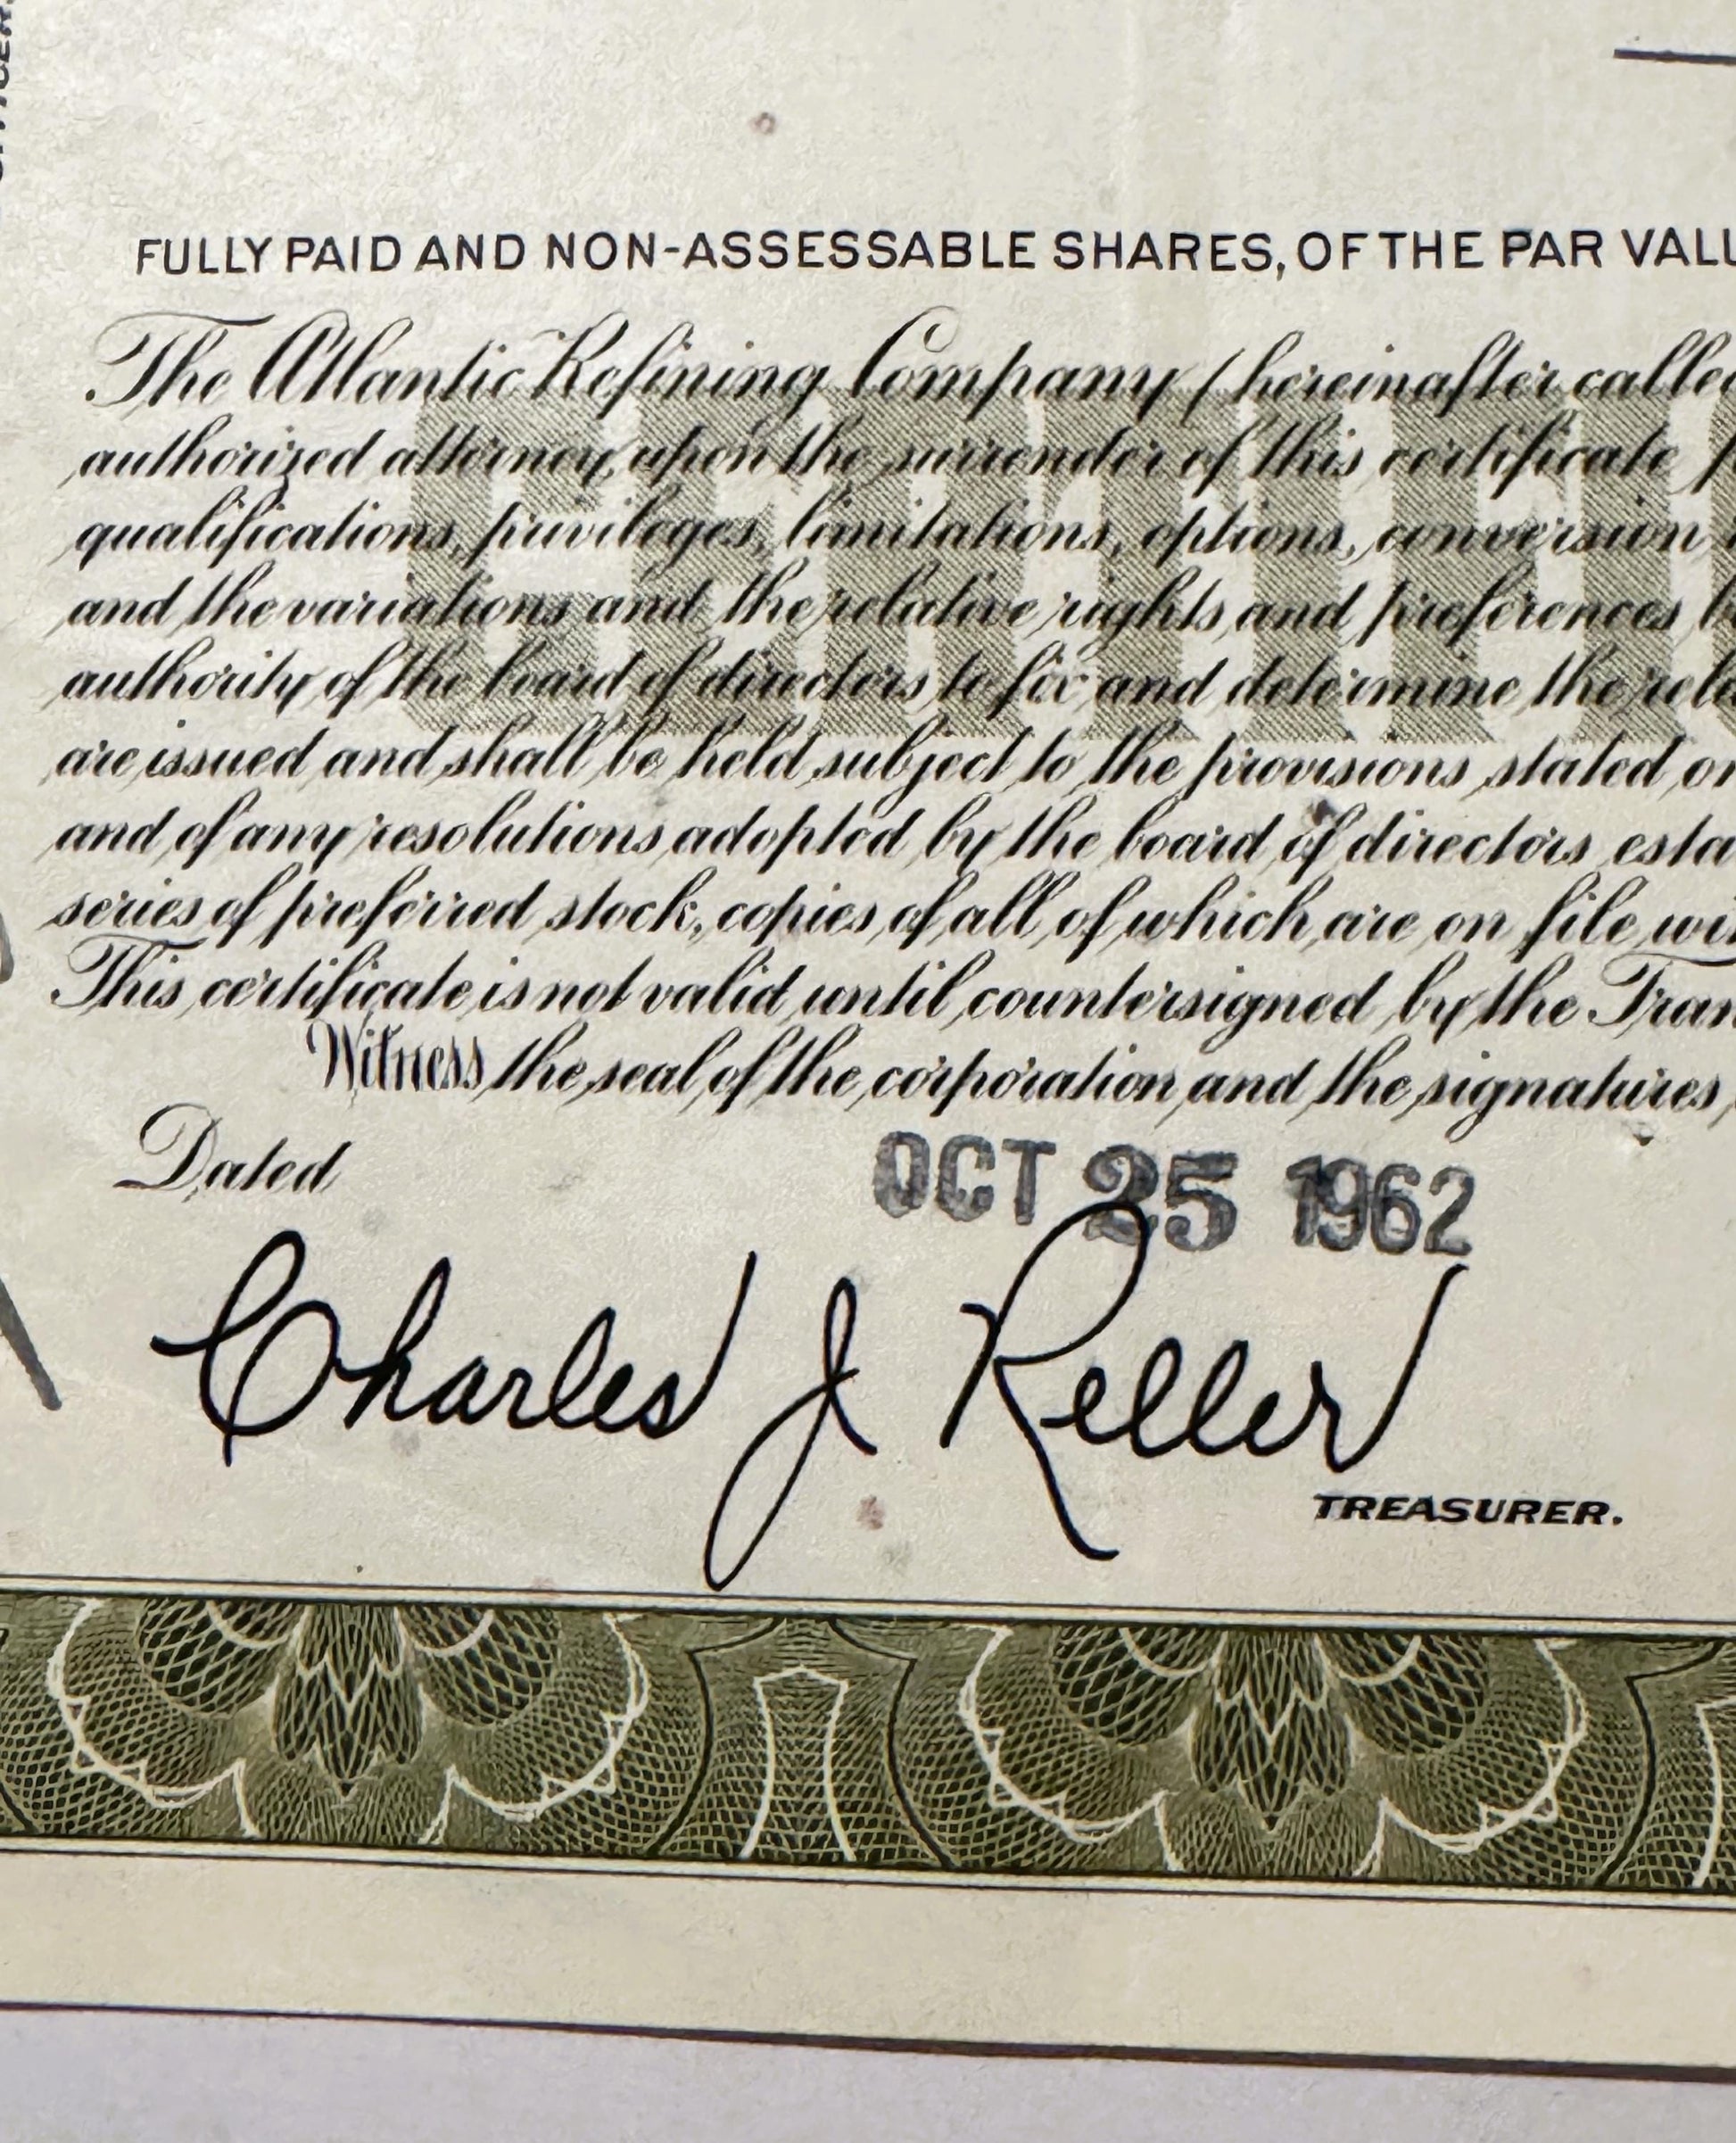 FULLY PAID AND NON-ASSESSABLE SHARES, OF THE PAR VALU
The Atlantic Refining Company (hereinafter calle
authorized attorney, upon the surrender of this certificate p
qualifications, privileges, limitations, options, conversion
and the variations and the relative rights and preferences b
authority of the board of directors to fix and determine the rela
are issued and shall be held subject to the provisions stated on
and of any resolutions adopted by the board of directors esta
series of preferred stock, copies of all of which are on file wi
This certificate is not valid until countersigned by the Tran
Witness the seal of the corporation and the signatures,
Dated OCT 25 1962
Charles J Keller
TREASURER.